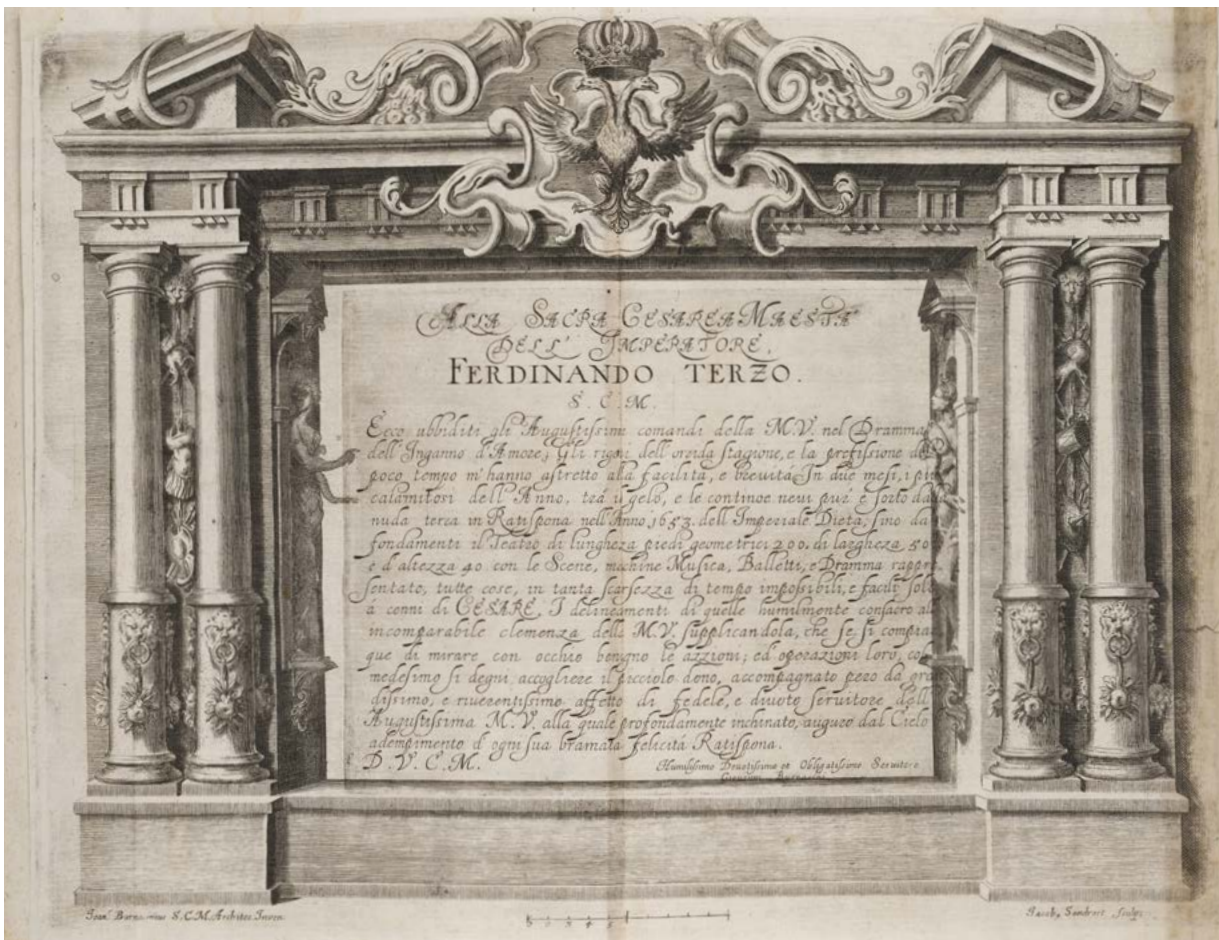 ALLA SACRA CESAREA MAESTA
DELL' IMPERATORE,
FERDINANDO TERZO.
S. C. M.
Ecco ubbiditi gli Augustissimi comandi della M.V. nel Dramma
dell'Inganno d'Amore; Gli rigori dell'orrida stagione, e la prefissione del
poco tempo m'hanno astretto alla facilita, e brevitá. In due mesi, i piu
calamitosi dell'Anno, trá il gelo, e le continoe nevi pur' é sorto da
nuda terra in Ratispona nell'Anno 1653. dell'Imperiale Dieta, fino da
fondamenti il Teatro di lungheza piedi geometrici 200. di largheza 50
e d'altezza 40 con le Scene, machine Musica, Balletti, e Dramma rappre
sentato, tutte cose, in tanta scarsezza di tempo impossibili, e facili solo
a cenni di CESARE, I delineamenti di quelle humilmente consacro all
incomparabile clemenza della M.V. supplicandola, che se, si compia
que di mirare con occhio benigno le azzioni; ed operazioni loro, col
medesimo si degni accogliere il picciolo dono, accompagnato pero da gra
dissimo, e riverentissimo affetto di fedele, e divoto servitore dell'
Augustissima M.V. alla quale profondamente inchinato, auguro dal Cielo
adempimento d'ogni sua bramata felicitá Ratispona.
D. V. C. M.
Humilissimo Devotissimo et Obligatissimo Servitore
Giovanni Burnacini
Joan. Burnacinius S.C.M. Architec. Inven.
Jacob, Sandrart Sculps.